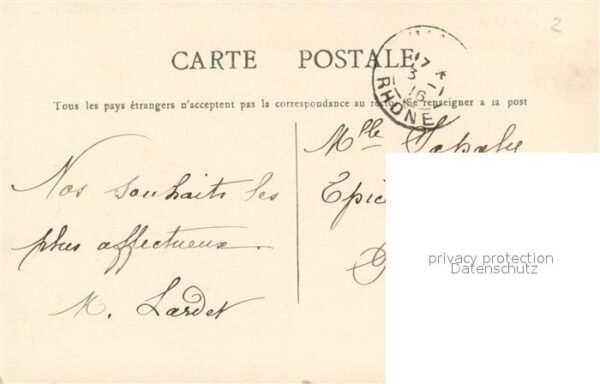 2
CARTE POSTALE
17
3
16
RHONE
Tous les pays étrangers n'acceptent pas la correspondance au recto, se renseigner à la post
Mlle
Nos souhaits les
plus affectueux.
M. Lardet
Epic
privacy protection
Datenschutz